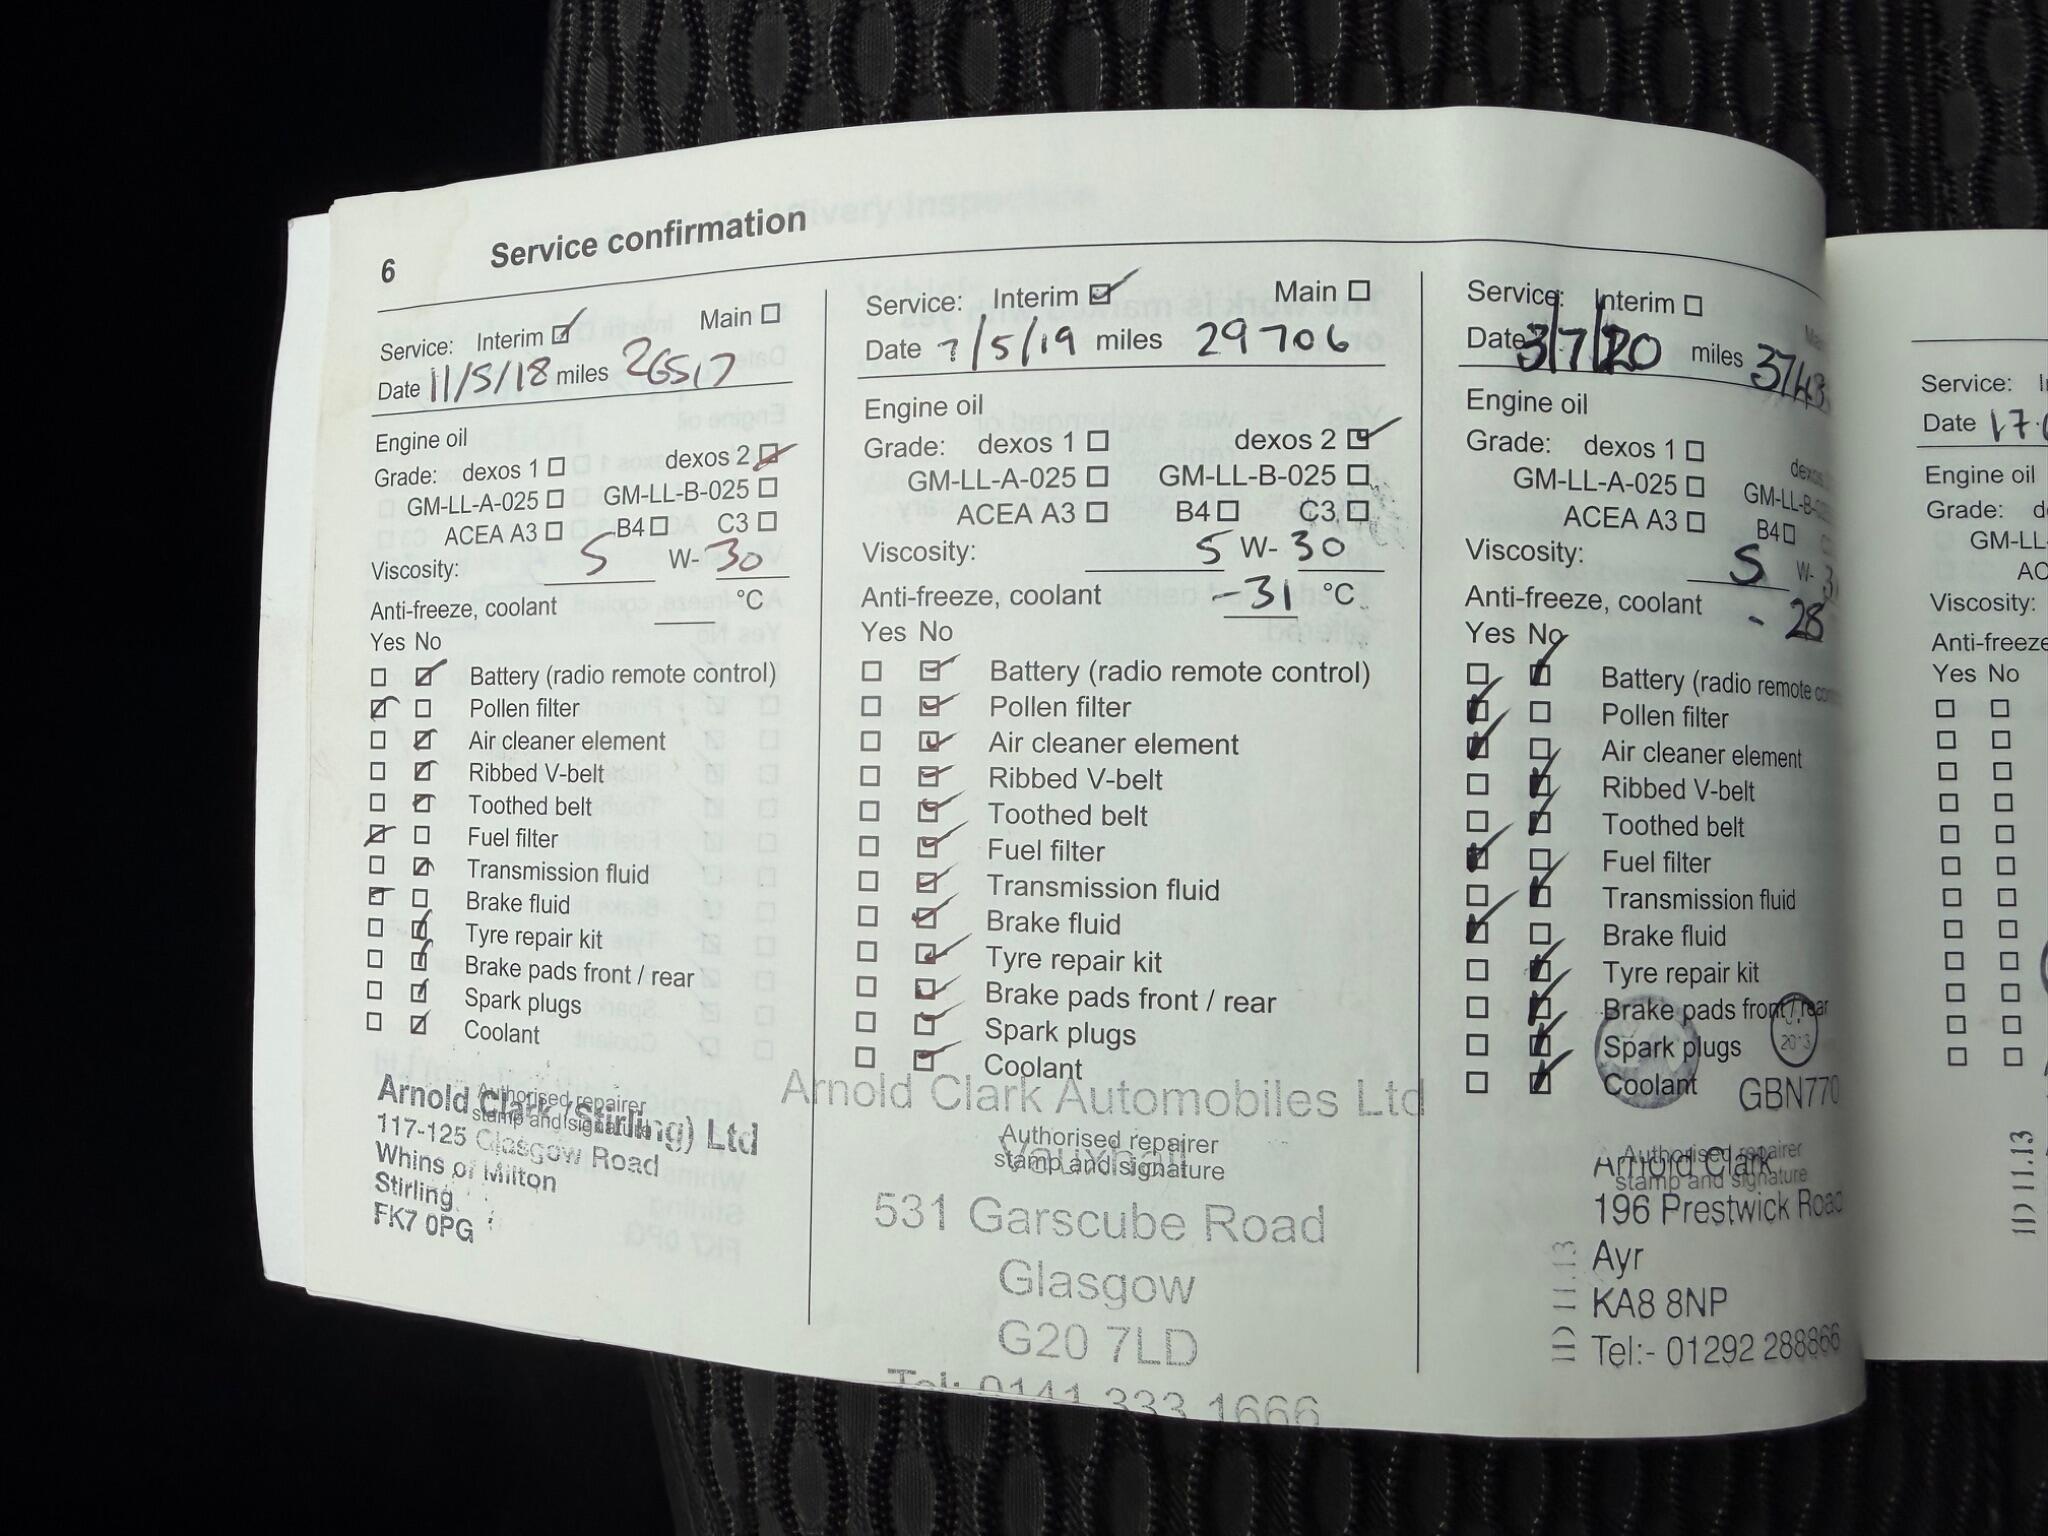 6 Service confirmation
Service: Interim Main
Date 11/5/18 miles 26517
Engine oil
Grade: dexos 1 dexos 2
GM-LL-A-025 GM-LL-B-025
ACEA A3 B4 C3
Viscosity: 5 W- 30
Anti-freeze, coolant °C
Yes No
Battery (radio remote control)
Pollen filter
Air cleaner element
Ribbed V-belt
Toothed belt
Fuel filter
Transmission fluid
Brake fluid
Tyre repair kit
Brake pads front / rear
Spark plugs
Coolant
Authorised repairer
stamp and signature
Arnold Clark (Stirling) Ltd
117-125 Glasgow Road
Whins of Milton
Stirling
FK7 0PG
Service: Interim Main
Date 7/5/19 miles 29706
Engine oil
Grade: dexos 1 dexos 2
GM-LL-A-025 GM-LL-B-025
ACEA A3 B4 C3
Viscosity: 5 W- 30
Anti-freeze, coolant -31 °C
Yes No
Battery (radio remote control)
Pollen filter
Air cleaner element
Ribbed V-belt
Toothed belt
Fuel filter
Transmission fluid
Brake fluid
Tyre repair kit
Brake pads front / rear
Spark plugs
Coolant
Arnold Clark Automobiles Ltd
Authorised repairer
stamp and signature
Vauxhall
531 Garscube Road
Glasgow
G20 7LD
Tel: 0141 333 1666
Service: Interim
Date 3/7/20 miles
Engine oil
Grade: dexos 1
GM-LL-A-025 GM-LL-B-
ACEA A3 B4
Viscosity: 5 W-
Anti-freeze, coolant - 28
Yes No
Battery (radio remote
Pollen filter
Air cleaner element
Ribbed V-belt
Toothed belt
Fuel filter
Transmission fluid
Brake fluid
Tyre repair kit
Brake pads front / rear
Spark plugs
2013
Coolant
GBN770
Authorised repairer
stamp and signature
Arnold Clark
196 Prestwick Road
Ayr
KA8 8NP
Tel:- 01292 288866
ID 11.13
Service:
Date 17.
Engine oil
Grade:
GM-LL
AC
Viscosity:
Anti-freeze
Yes No
ID 11.13